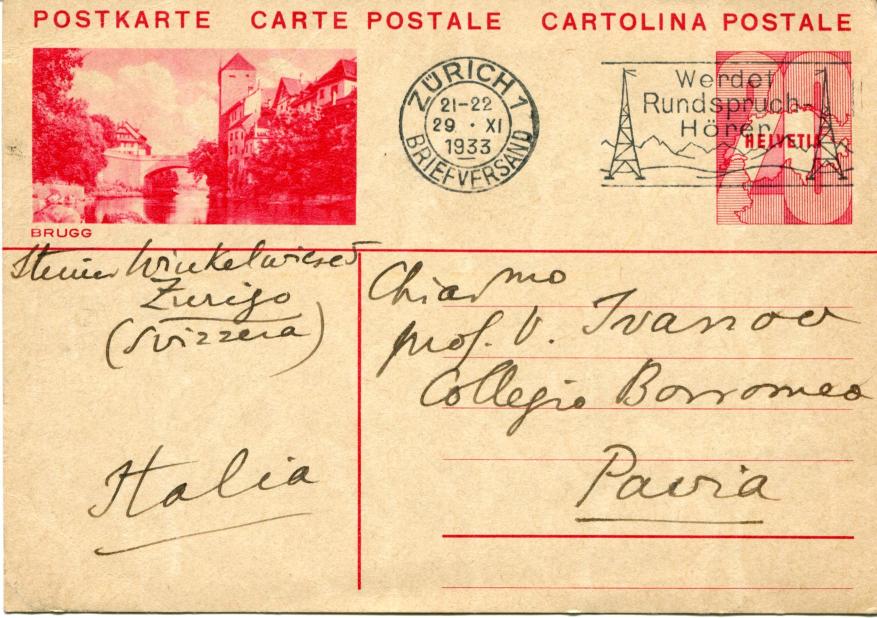 POSTKARTE CARTE POSTALE CARTOLINA POSTALE
BRUGG
ZÜRICH 1
21-22
29 · XI
1933
BRIEFVERSAND
Werdet
Rundspruch-
Hörer
HELVETIA
20
Steiner Winkelwiese 5
Zurigo
(Svizzera)
Italia
Chiar/mo
prof. V. Ivanov
Collegio Borromeo
Pavia